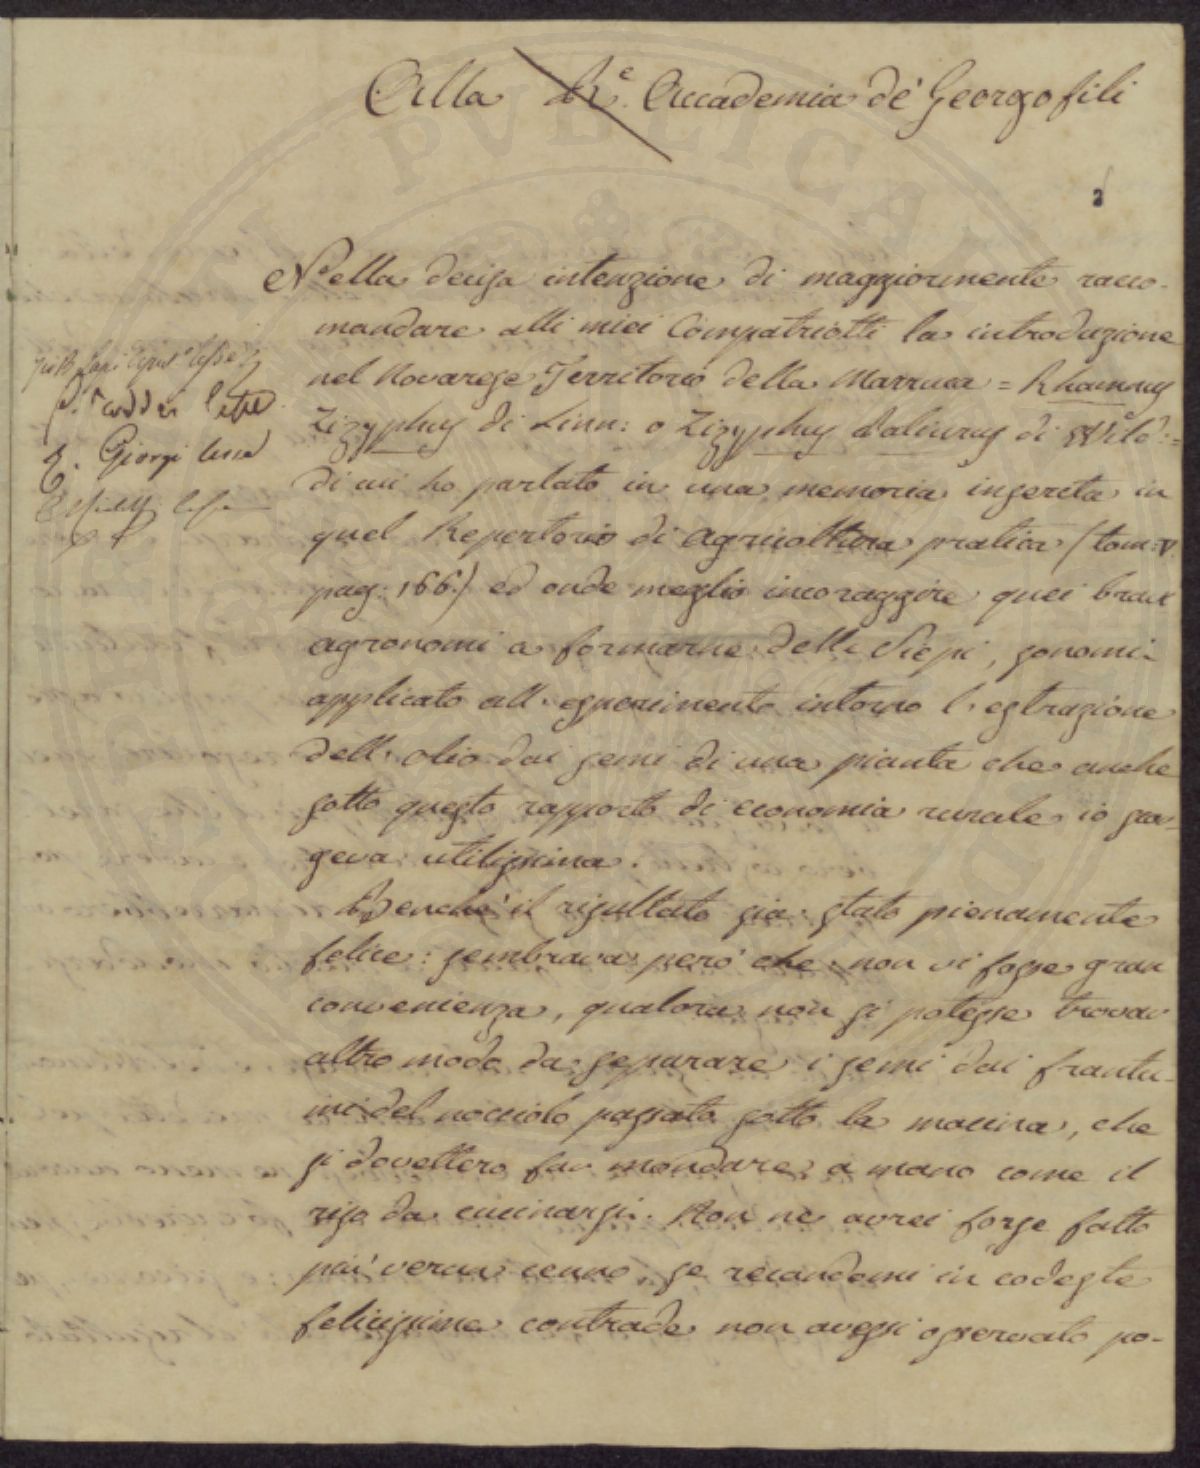 Alla R.e Accademia de' Georgofili
2
Nella decisa intenzione di maggiormente racco-
mandare alli miei Compatriotti la introduzione
nel Novarese Territorio della Marruca = Rhamnus
Zizyphus di Linn: o Zizyphus Paliurus di Wild: =
di cui ho parlato in una memoria inserita in
quel Repertorio di agricoltura pratica (tom: V.
pag: 166.) ed onde meglio incoraggire quei bravi
agronomi a formarne delle Siepi, sonomi
applicato all'esperimento intorno l'estrazione
dell'olio dai semi di una pianta che anche
sotto questo rapporto di economia rurale io
geva utilissima.
Benche' il risultato sia stato pienamente
felice: sembrava però che non vi fosse gran
convenienza, qualora non si potesse trovar
altro modo da separare i semi dai frantu-
mi del nocciolo passato sotto la macina, che
si dovettero far mondare a mano come il
riso da cucinarsi. Non ne avrei forse fatto
piu' verun cenno, se recandomi in codeste
felicissime contrade non avessi osservato po-
Giorgi